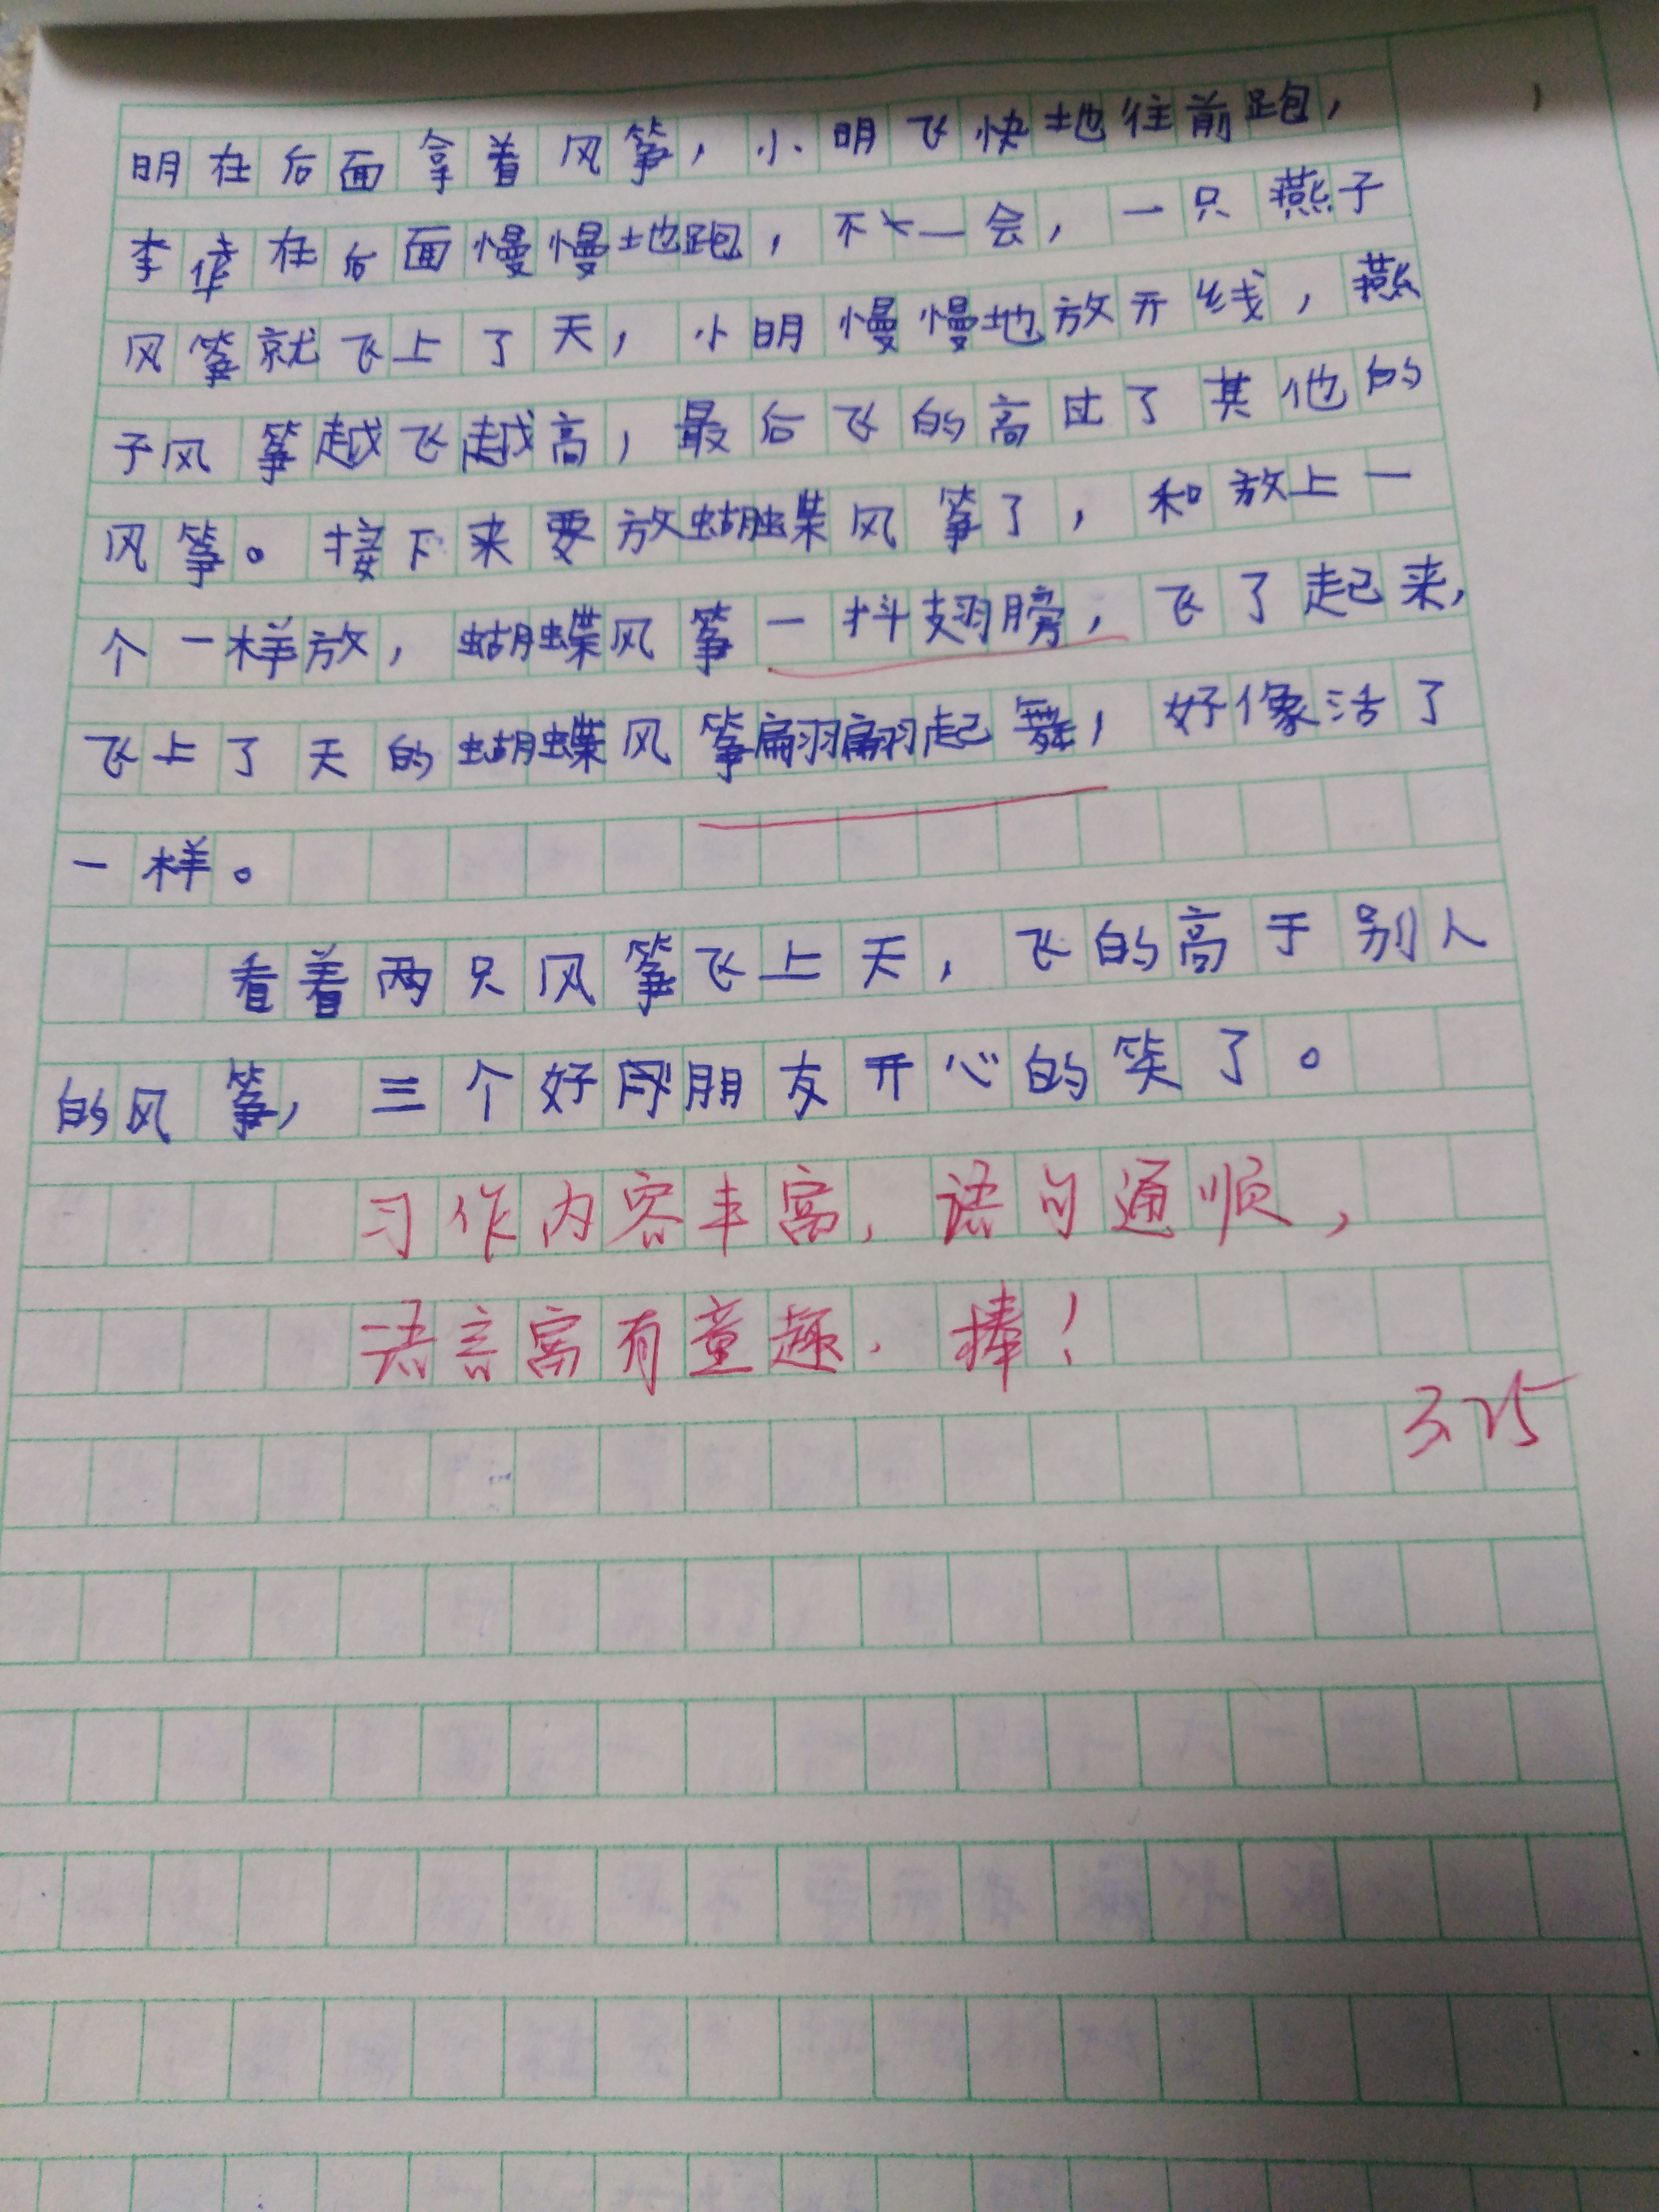 明在后面拿着风筝，小明飞快地往前跑，
李华在后面慢慢地跑，不一会，一只燕子
风筝就飞上了天，小明慢慢地放开线，燕
子风筝越飞越高，最后飞的高过了其他的
风筝。接下来要放蝴蝶风筝了，和放上一
个一样放，蝴蝶风筝一抖翅膀，飞了起来，
飞上了天的蝴蝶风筝翩翩起舞，好像活了
一样。
看着两只风筝飞上天，飞的高于别人
的风筝，三个好朋友开心的笑了。
习作内容丰富，语句通顺，
语言富有童趣．棒！
3.25